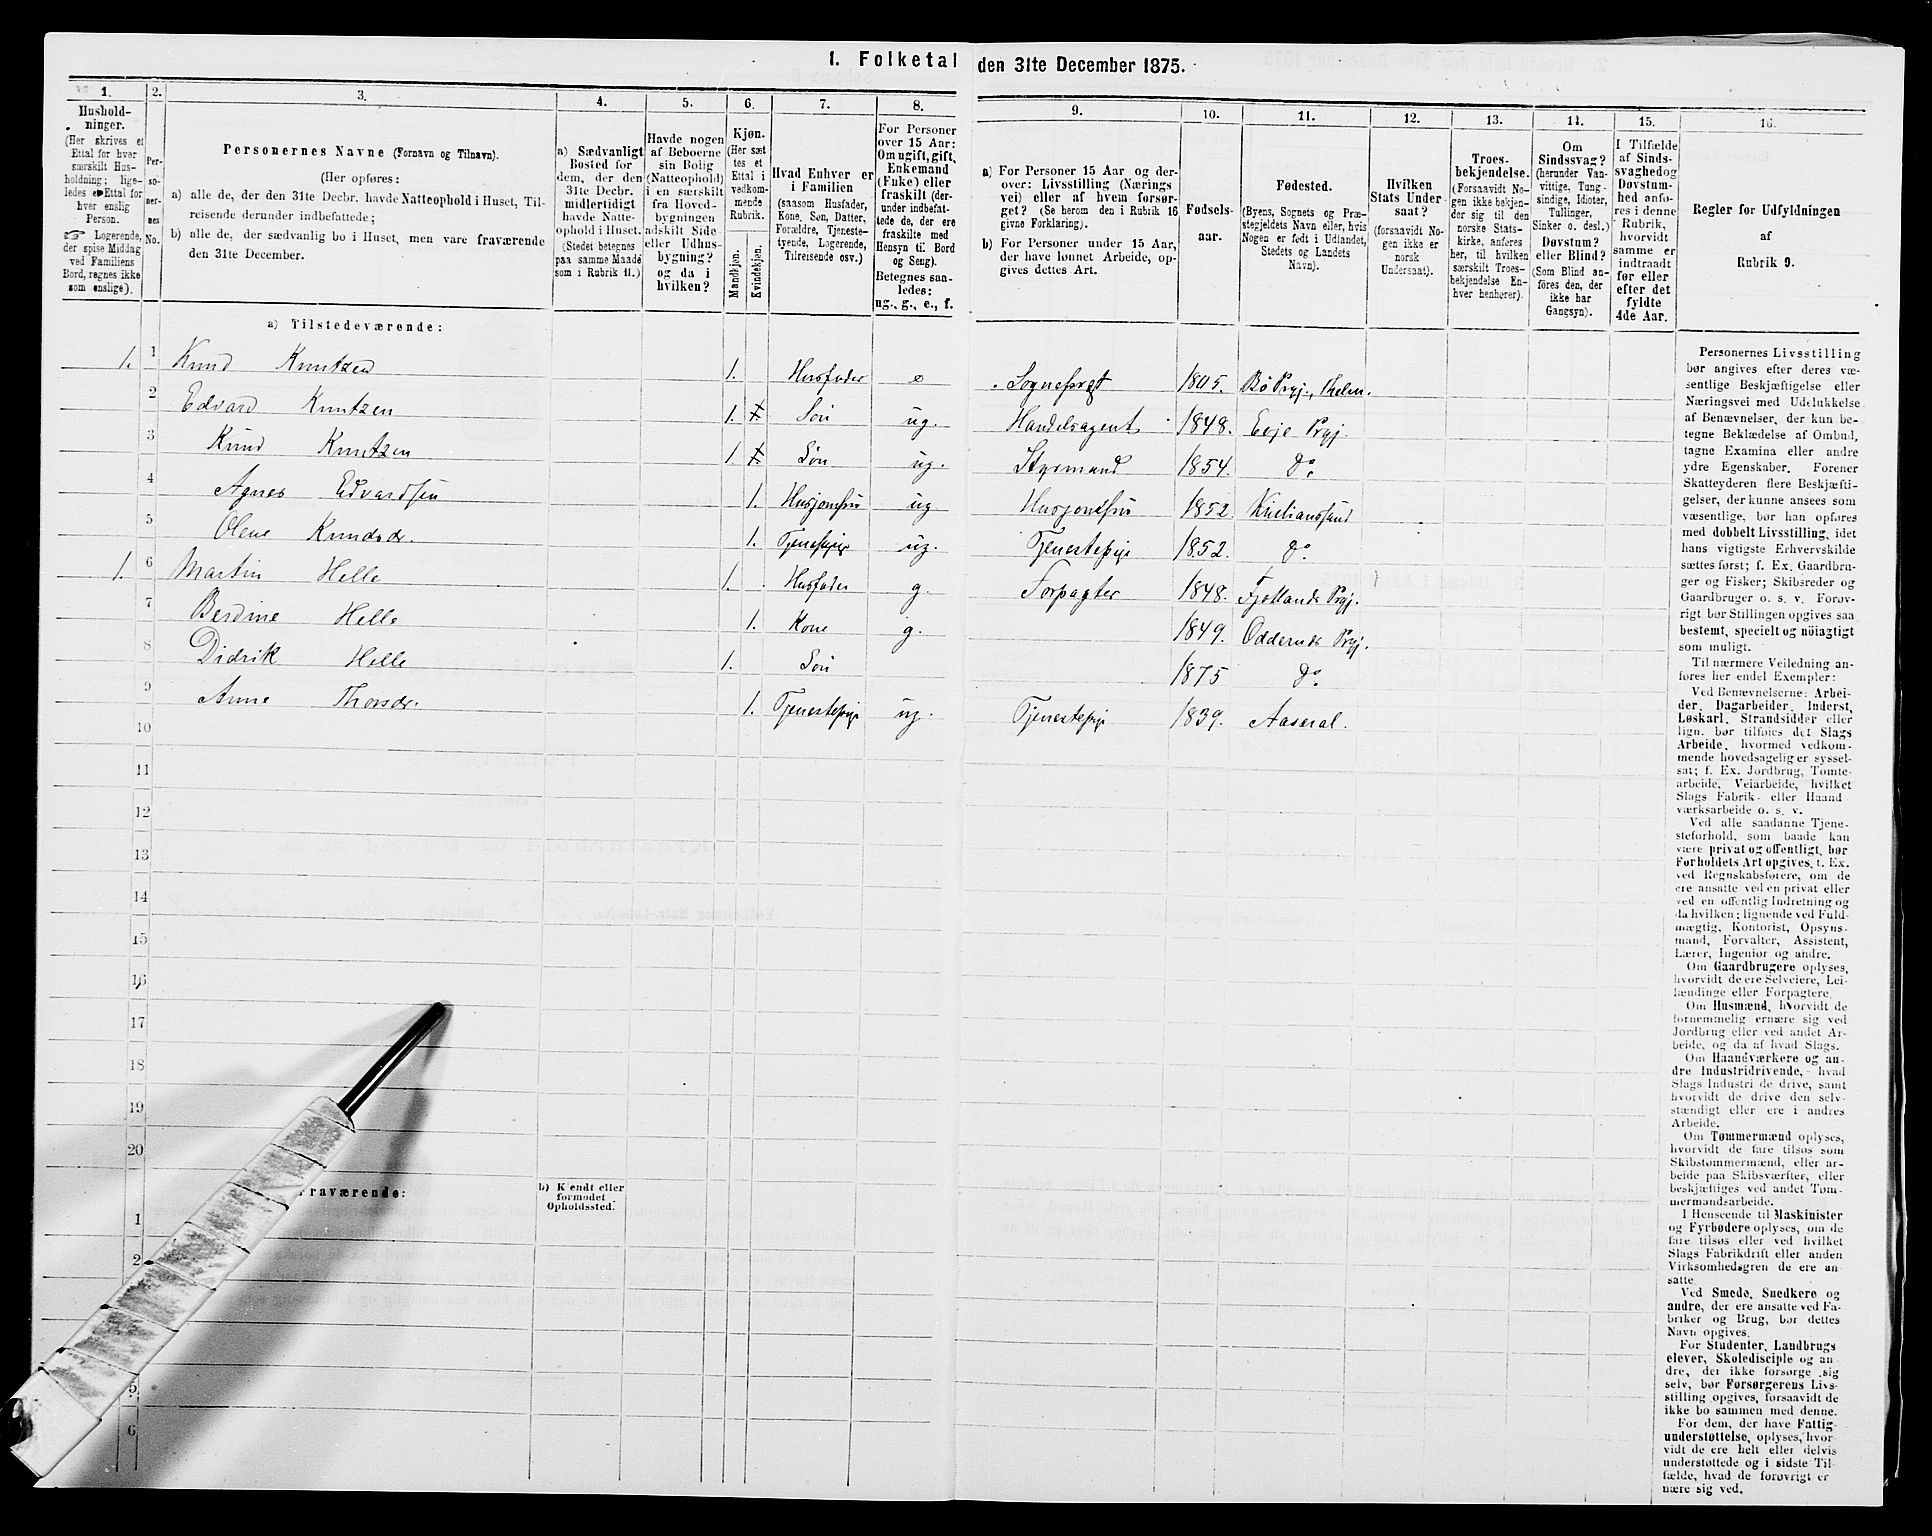 1. Folketal den 31te December 1875.
1. 2. 3. 4. 5. 6. 7. 8. 9. 10. 11. 12. 13. 14. 15. 16.
Hushold-
ninger.
(Her skrives et
Ettal for hver
særskilt Hus-
holdning; lige-
ledes et Ettal for
hver enslig
Person.
☞ Logerende,
der spise Middag
ved Familiens
Bord, regnes ikke
som enslige).
Per-
so-
ner-
nes
No.
Personernes Navne (Fornavn og Tilnavn).
(Her opføres:
a) alle de, der den 31te Decbr. havde Natteophold i Huset, Til-
reisende derunder indbefattede;
b) alle de, der sædvanlig bo i Huset, men vare fraværende
den 31te December.
a) Sædvanligt
Bosted for
dem, der den
31te Decbr.
midlertidigt
havde Natte-
ophold i Huset.
(Stedet betegnes
paa samme Maade
som i Rubrik 11.)
Havde nogen
af Beboerne
sin Bolig
(Natteophold)
i en særskilt
fra Hoved-
bygningen
adskilt Side-
eller Udhus-
bygning?
og da i
hvilken?
Kjøn.
(Her sæt
tes et
Ettal i
vedkom-
mende
Rubrik.
Mandkjøn.
Kvindekjøn.
Hvad Enhver er
i Familien
(saasom Husfader,
Kone, Søn, Datter,
Forældre, Tjeneste-
tyende, Logerende,
Tilreisende osv.)
For Personer
over 15 Aar:
Om ugift, gift,
Enkemand
(Enke) eller
fraskilt (der-
under indbefat-
tede de, der ere
fraskilte med
Hensyn til Bord
og Seng).
Betegnes saa-
ledes:
ug., g., e., f.
a) For Personer 15 Aar og der-
over: Livsstilling (Nærings
vei) eller af hvem forsør-
get? (Se herom den i Rubrik 16
givne Forklaring).
b) For Personer under 15 Aar,
der have lønnet Arbeide, op-
gives dettes Art.
Fødsels-
aar.
Fødested.
(Byens, Sognets og Præ-
stegjeldets Navn eller, hvis
Nogen er født i Udlandet,
Stedets og Landets
Navn).
Hvilken
Stats Under
saat?
(forsaavidt No-
gen ikke er
norsk
Undersaat).
Troes-
bekjendelse.
(Forsaavidt No-
gen ikke bekjen-
der sig til den
norske Stats-
kirke, anføres
her, til hvilken
særskilt Troes-
bekjendelse En-
hver henhører).
Om
Sindssvag?
(herunder Van-
vittige, Tung-
sindige, Idioter,
Tullinger,
Sinker o. desl.)
Døvstum?
eller Blind?
(Som Blind an-
föres den, der
ikke har
Gangsyn).
I Tilfælde
af Sinds-
svaghed og
Døvstum-
hed anfø-
res i denne
Rubrik,
hvorvidt
samme er
indtraadt
før eller
efter det
fyldte
4de Aar.
Regler for Udfyldningen
af
Rubrik 9.
a) Tilstedeværende:
1. 1 Knud Knutzen 1. Husfader e Sognefogt 1805. Bø Prgj., Thelm.
2 Edvard Knutzen 1. Søn ug. Handelsagent 1848. Evje Prgj.
3 Knud Knutzen 1. Søn ug. Styrmand 1854. Do.
4 Agnes Edvardsen 1. Husjomfru ug Husjomfru 1852. Kristianssand
5 Olene Knudsdr. 1. Tjenestepige ug. Tjenestepige 1852. Do.
1. 6 Martin Helle 1. Husfader g. Forpagter 1848. Fjotlands Prgj.
7 Berdine Helle 1. Kone g. 1849. Oddernes Prgj.
8 Didrik Helle 1. Søn 1875 Do.
9 Anne Thorsdr. 1. Tjenestepige ug. Tjenestepige 1839. Aaseral.
10
11
12
13
14
15
16
17
18
19
20
raværende:
b) Kjendt eller
formodet
Opholdssted.
1
2
5
6
Personernes Livsstilling
bør angives efter deres væ-
sentlige Beskjæftigelse eller
Næringsvei med Udelukkelse
af Benævnelser, der kun be-
tegne Beklædelse af Ombud,
tagne Examina eller andre
ydre Egenskaber. Forener
Skatteyderen flere Beskjæfti-
gelser, der kunne ansees som
væsentlige, bør han opføres
med dobbelt Livsstilling, idet
hans vigtigste Erhvervskilde
sættes først; f. Ex. Gaardbru-
ger og Fisker; Skibsreder og
Gaardbruger o. s. v. Forøv-
rigt bør Stillingen opgives saa
bestemt, specielt og nöiagtigt
som muligt.
Til nærmere Veiledning an-
føres her endel Exempler:
Ved Benævnelserne: Arbei-
der, Dagarbeider, Inderst,
Løskarl, Strandsidder eller
lign. bør tilføies det Slags
Arbeide, hvormed vedkom-
mende hovedsagelig er syssel-
sat; f. Ex. Jordbrug, Tomte-
arbeide, Veiarbeide, hvilket
Slags Fabrik- eller Haand
værksarbeide o. s. v.
Ved alle saadanne Tjene-
steforhold, som baade kan
være privat og offentligt, bør
Forholdets Art opgives, f. Ex.
ved Regnskabsførere, om de
ere ansatte ved en privat eller
ved en offentlig Indretning og
da hvilken; lignende ved Fuld-
mægtig, Kontorist, Opsyns-
mand, Forvalter, Assistent,
Lærer, Ingeniør og andre.
Om Gaardbrugere oplyses,
hvorvidt de ere Selveiere, Lei-
lændinge eller Forpagtere.
Om Husmænd, hvorvidt de
fornemmelig ernære sig ved
Jordbrug eller ved andet Ar-
beide, og da af hvad Slags.
Om Haandværkere og an-
dre Industridrivende, hvad
Slags Industri de drive, samt
hvorvidt de drive den selv-
stændigt eller ere i andres
Arbeide.
Om Tømmermænd oplyses,
hvorvidt de fare tilsøs som
Skibstømmermænd, eller ar-
beide paa Skibsværfter, eller
beskjæftiges ved andet Tøm-
mermandsarbeide.
I Henseende til Maskinister
og Fyrbødere oplyses, om de
fare tilsøs eller ved hvilket
Slags Fabrikdrift eller anden
Virksomhedsgren de ere an-
satte.
Ved Smede, Snedkere og
andre, der ere ansatte ved Fa-
briker og Brug, bør dettes
Navn opgives.
For Studenter, Landbrugs
elever, Skoledisciple og an
dre, der ikke forsørge sig
selv, bør Forsørgerens Livs-
stilling opgives, forsaavidt de
ikke bo sammen med denne.
For dem, der have Fattig-
understøttelse, oplyses, hvor-
vidt de ere helt eller delvis
understøttede og i sidste Til-
fælde, hvad de forøvrigt er
nære sig ved.